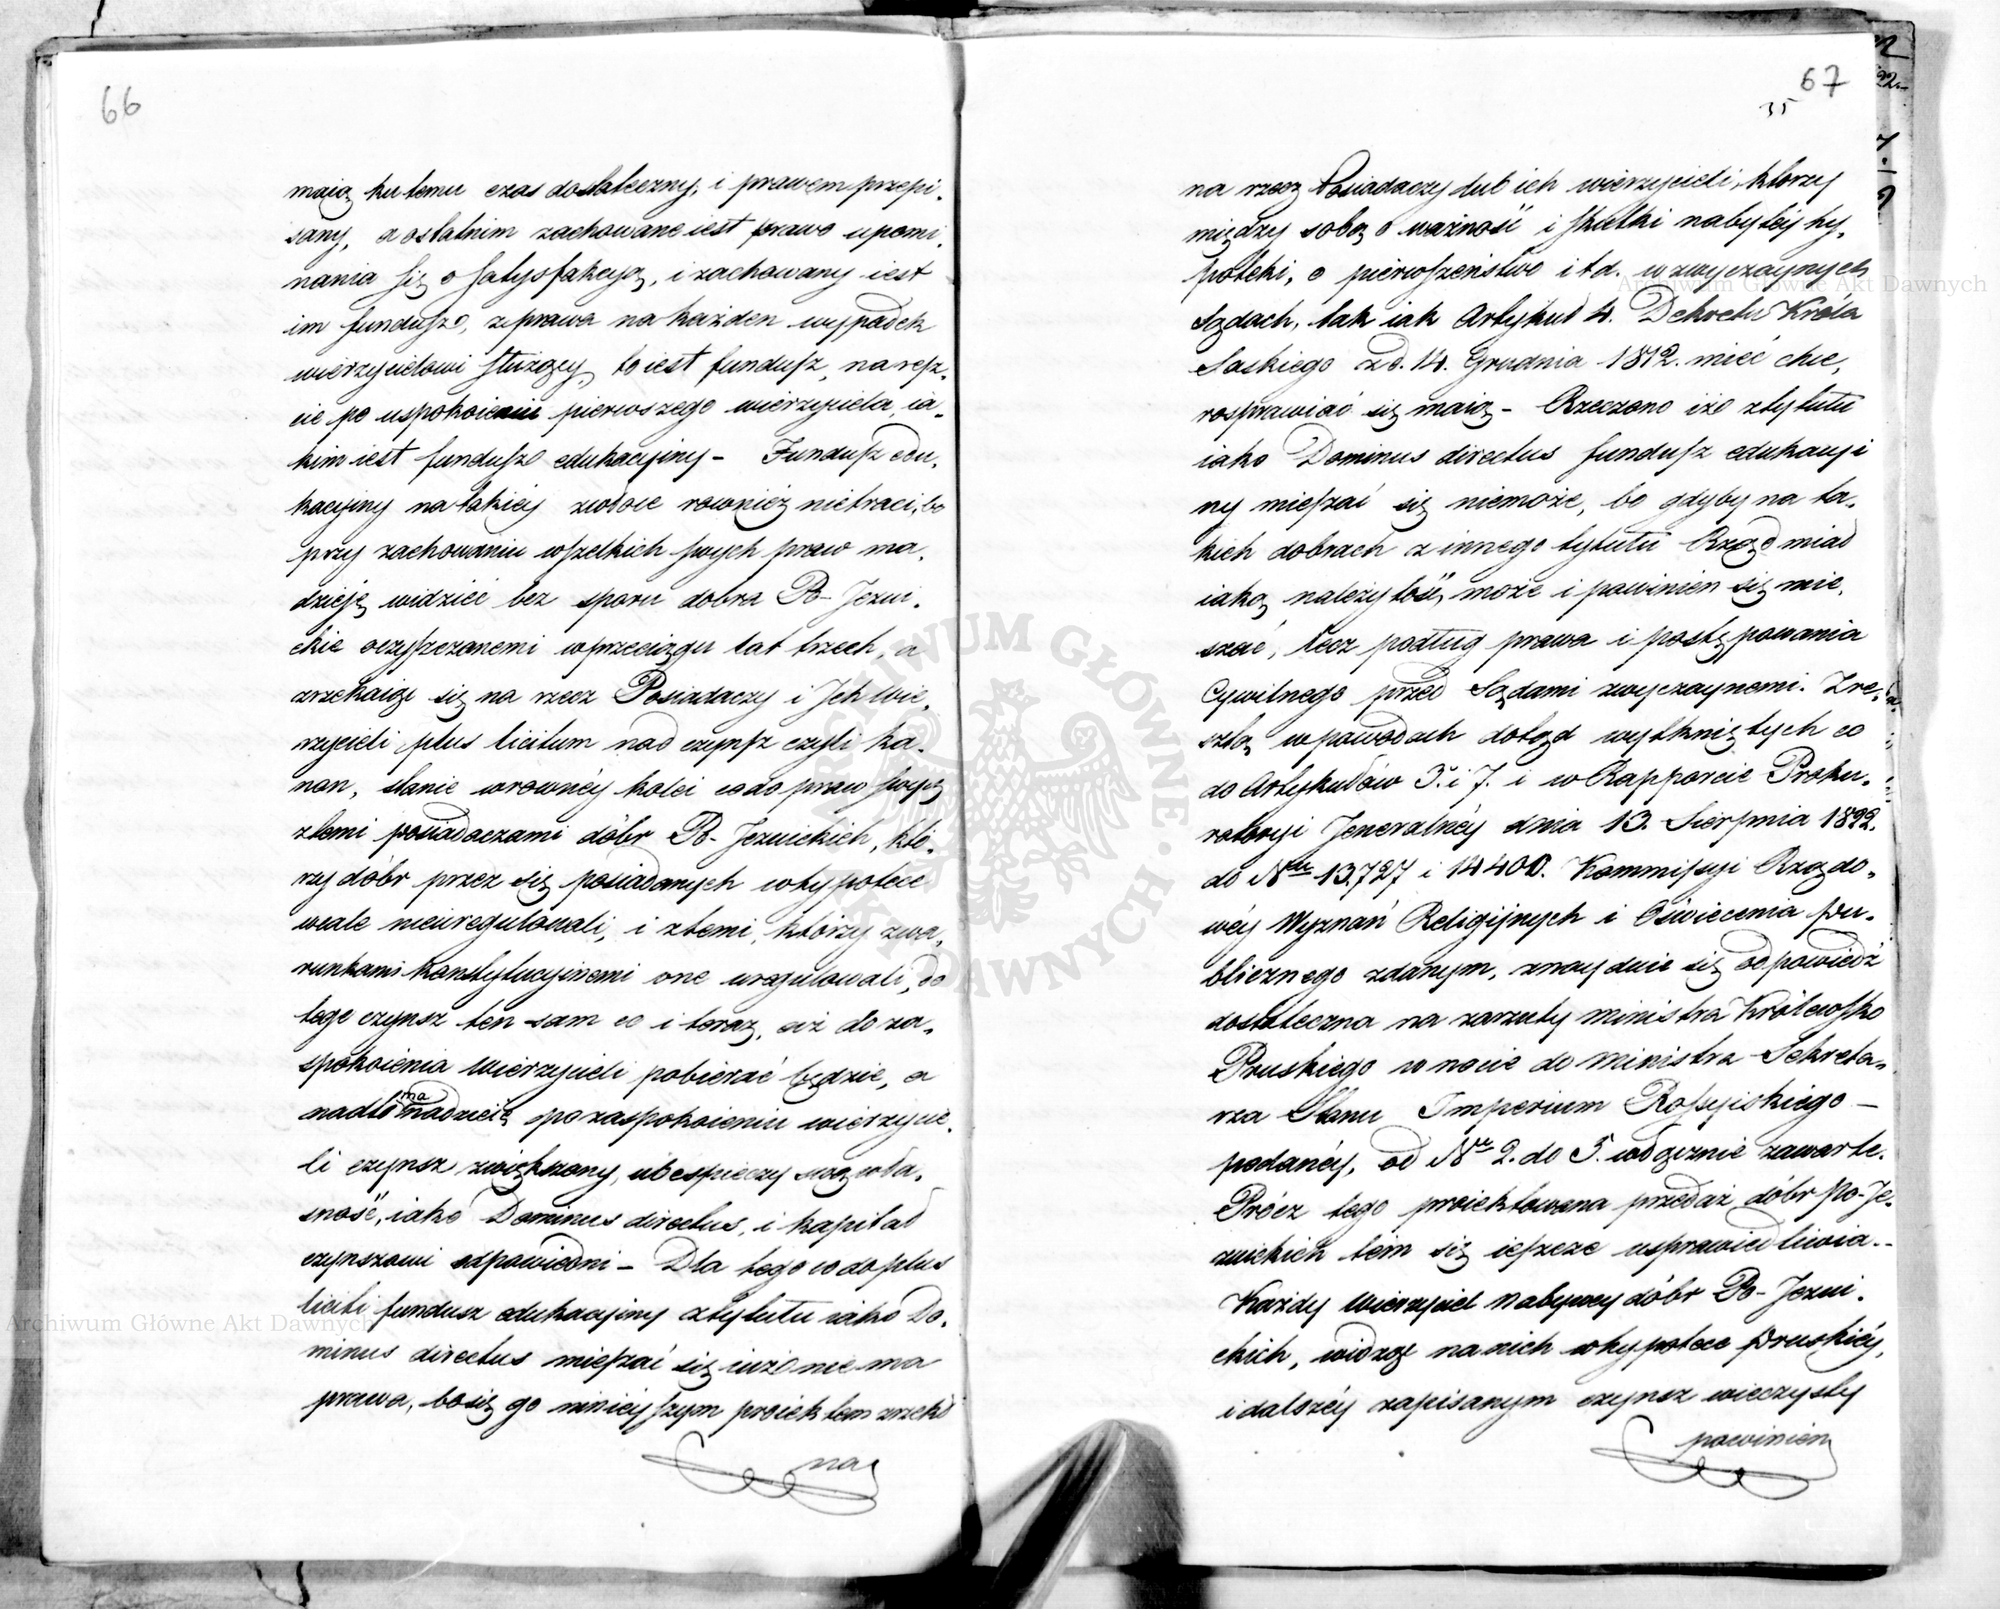 66
maią ku temu czas dostateczny, i prawem przepi-
sany, a ostatnim zachowane iest prawo upomi-
nania się o satysfakcyą, i zachowany iest
im fundusz, z prawa na każden wypadek
wierzycielowi służący, to iest fundusz, na resz-
cie po uspokoieniu pierwszego wierzyciela, ia-
kim iest fundusz edukacyiny – Fundusz edu-
kacyiny na takiéy zwłoce rownież nietraci, bo
przy zachowaniu wszelkich swych praw ma
dzieję widzieć bez sporu dobra Po-Jezui-
ckie oczyszczonemi w przeciągu lat trzech, a
zrzekaiąc się na rzecz Posiadaczy i Ich wie-
rzycieli plus licitum nad czynsz czyli ka-
non, stanie w rownéy kolei co do praw swych
z temi posiadaczami dóbr Po-Jezuickich, któ-
rzy dóbr przez się posiadanych w hypotece
wcale nieuregulowali, i z temi, którzy z wa-
runkami konstytucyinemi one uregulowali, do
tego czynsz ten sam co i teraz, aż do za-
spokoienia Wierzycieli pobierać będzie, a
nadto ma nadzieię po zaspokoieniu wierzycie-
li czynsz zwiększony, ubespieczy swą wła-
sność, iako Dominus directus, i kapitał
czynszowi odpowiedni – Dla tego co do plus
liciti fundusz edukacyiny z tytułu iako Do-
minus directus mieszać się iuż nie ma
prawa, bo się go ninieyszym proiektem zrzekł
na
67
35
na rzecz Posiadaczy lub ich wierzycieli, ktorzy
między sobą o ważność i skutki nabytéy hy-
poteki, o pierwszeństwo itd. w zwyczaynych
Sądach, tak iak Artykuł 4. Dekretu Króla
Saskiego z d. 14. Grudnia 1812. mieć chce,
rosprawiać się maią – Rzeczono iż z tytułu
iako Dominus directus fundusz edukacyi
ny mieszać się niemoże, bo gdyby na ta-
kich dobrach z innego tytułu Rząd miał
iaką należytość, może i powinien się mie-
szać, lecz podług prawa i postępowania
Cywilnego przed Sądami zwyczaynemi. Zre-
sztą w powodach dotąd wytkniętych co
do Artykułów 5. i 7. i w Rapporcie Proku-
ratoryi Jeneralnéy dnia 13. Sierpnia 1822.
do Nru 13,727 i 14400. Kommissyi Rządo-
wéy Wyznań Religiynych i Oświecenia Pu-
blicznego zdanym, znayduie się odpowiedź
dostateczna na zarzuty ministra Królewsko
Pruskiego w nocie do ministra Sekreta-
rza Stanu Imperium Rossyiskiego –
podanéy, od Nru 2. do 5. włącznie zawarte.
Prócz tego proiektowana przedaż dóbr Po-Je-
zuickich tém się ieszcze usprawiedliwia. –
Każdy Wierzyciel nabywcy dóbr Po-Jezui-
ckich, widząc na nich w hypotece Pruskiéy,
i dalszéy zapisanym czynsz wieczysty
powinien
Archiwum Główne Akt Dawnych
Archiwum Główne Akt Dawnych
ARCHIWUM GŁÓWNE · AKT DAWNYCH ·